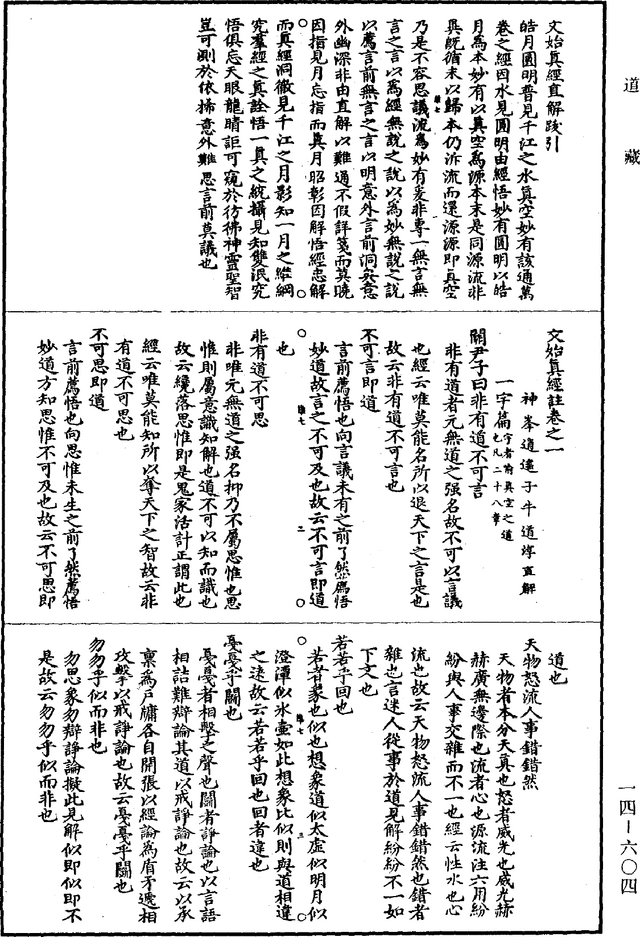 道藏
文始真經直解跋引
皓月圓明普見千江之水真空妙有該通萬
卷之經因水見圓明由經悟妙有圓明以皓
月為本妙有以真空為源本末是同源流非
異既循末以歸本仍泝流而還源源即真空
乃是不容思議流為妙有爰非專一無言無
言之言以為經無說之說以為妙無說之說
以薦言前無言之言以明意外言前洞奐意
外幽深非由直解以難通不假詳箋而莫曉
因指見月忘指而真月昭彰因解悟經忠解
而真經洞徹見千江之月影知一月之縂綱
究羣經之真詮悟一真之統攝見知雙泯究
悟俱忘天眼龍睛詎可窺於彷彿神靈聖智
豈可測於依俙意外難思言前莫議也
文始真經註卷之一
神峯逍遥子牛道淳直解
一宇篇宇者前真空之道也凡二十八章
關尹子曰非有道不可言
非有道者元無道之强名故不可以言議
也經云唯莫能名所以退天下之言是也
故云非有道不可言也
不可言即道
言前薦悟也向言議未有之前了然薦悟
妙道故言之不可及也故云不可言即道
也
非有道不可思
非唯元無道之强名抑乃不屬思惟也思
惟則屬意識知解也道不可以知而識也
故云纔落思惟即是鬼家活計正謂此也
經云唯莫能知所以奪天下之智故云非
有道不可思也
不可思即道
言前薦悟也向思惟未生之前了然薦悟
妙道方知思惟不可及也故云不可思即
道也
天物怒流人事錯錯然
天物者本分天真也怒者威光也威光赫
赫廣無邊際也流者心也源流注六用紛
紛與人事交雜而不一也經云性水也心
流也故云天物怒流人事錯錯然也錯者
雜也言迷人從事於道見解紛紛不一如
下文也
若若乎回也
若若者蒙也似也想象道似太虛似明月似
澄潭似氷壷如此想象比似則與道相違
之遠故云若若乎回也回者違也
戞戞乎鬭也
戞戞者相擊之聲也鬭者諍論也以言語
相詰難辯論其道以戒諍論也故云以承
稟為戶牖各自開張以經論為盾矛遞相
攻擊以戒諍論也故云戞戞乎鬭也
勿勿乎似而非也
勿思象勿辯諍論擬此見解似即似即不
是故云勿勿乎似而非也
一四－六〇四